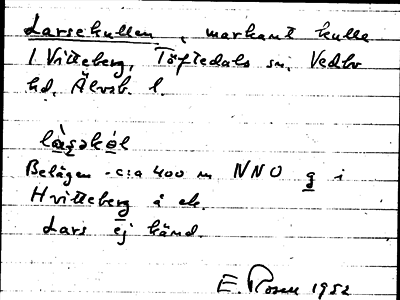 Larsekullen, markant kulle
i Vitteberg, Töftedals sn. Vedbo
hd. Älvsb. l.
làṣəkól
Belägen c:a 400 m NNO g i
Hvitteberg å ek.
Lars ej känd.
E. Rosen 1952